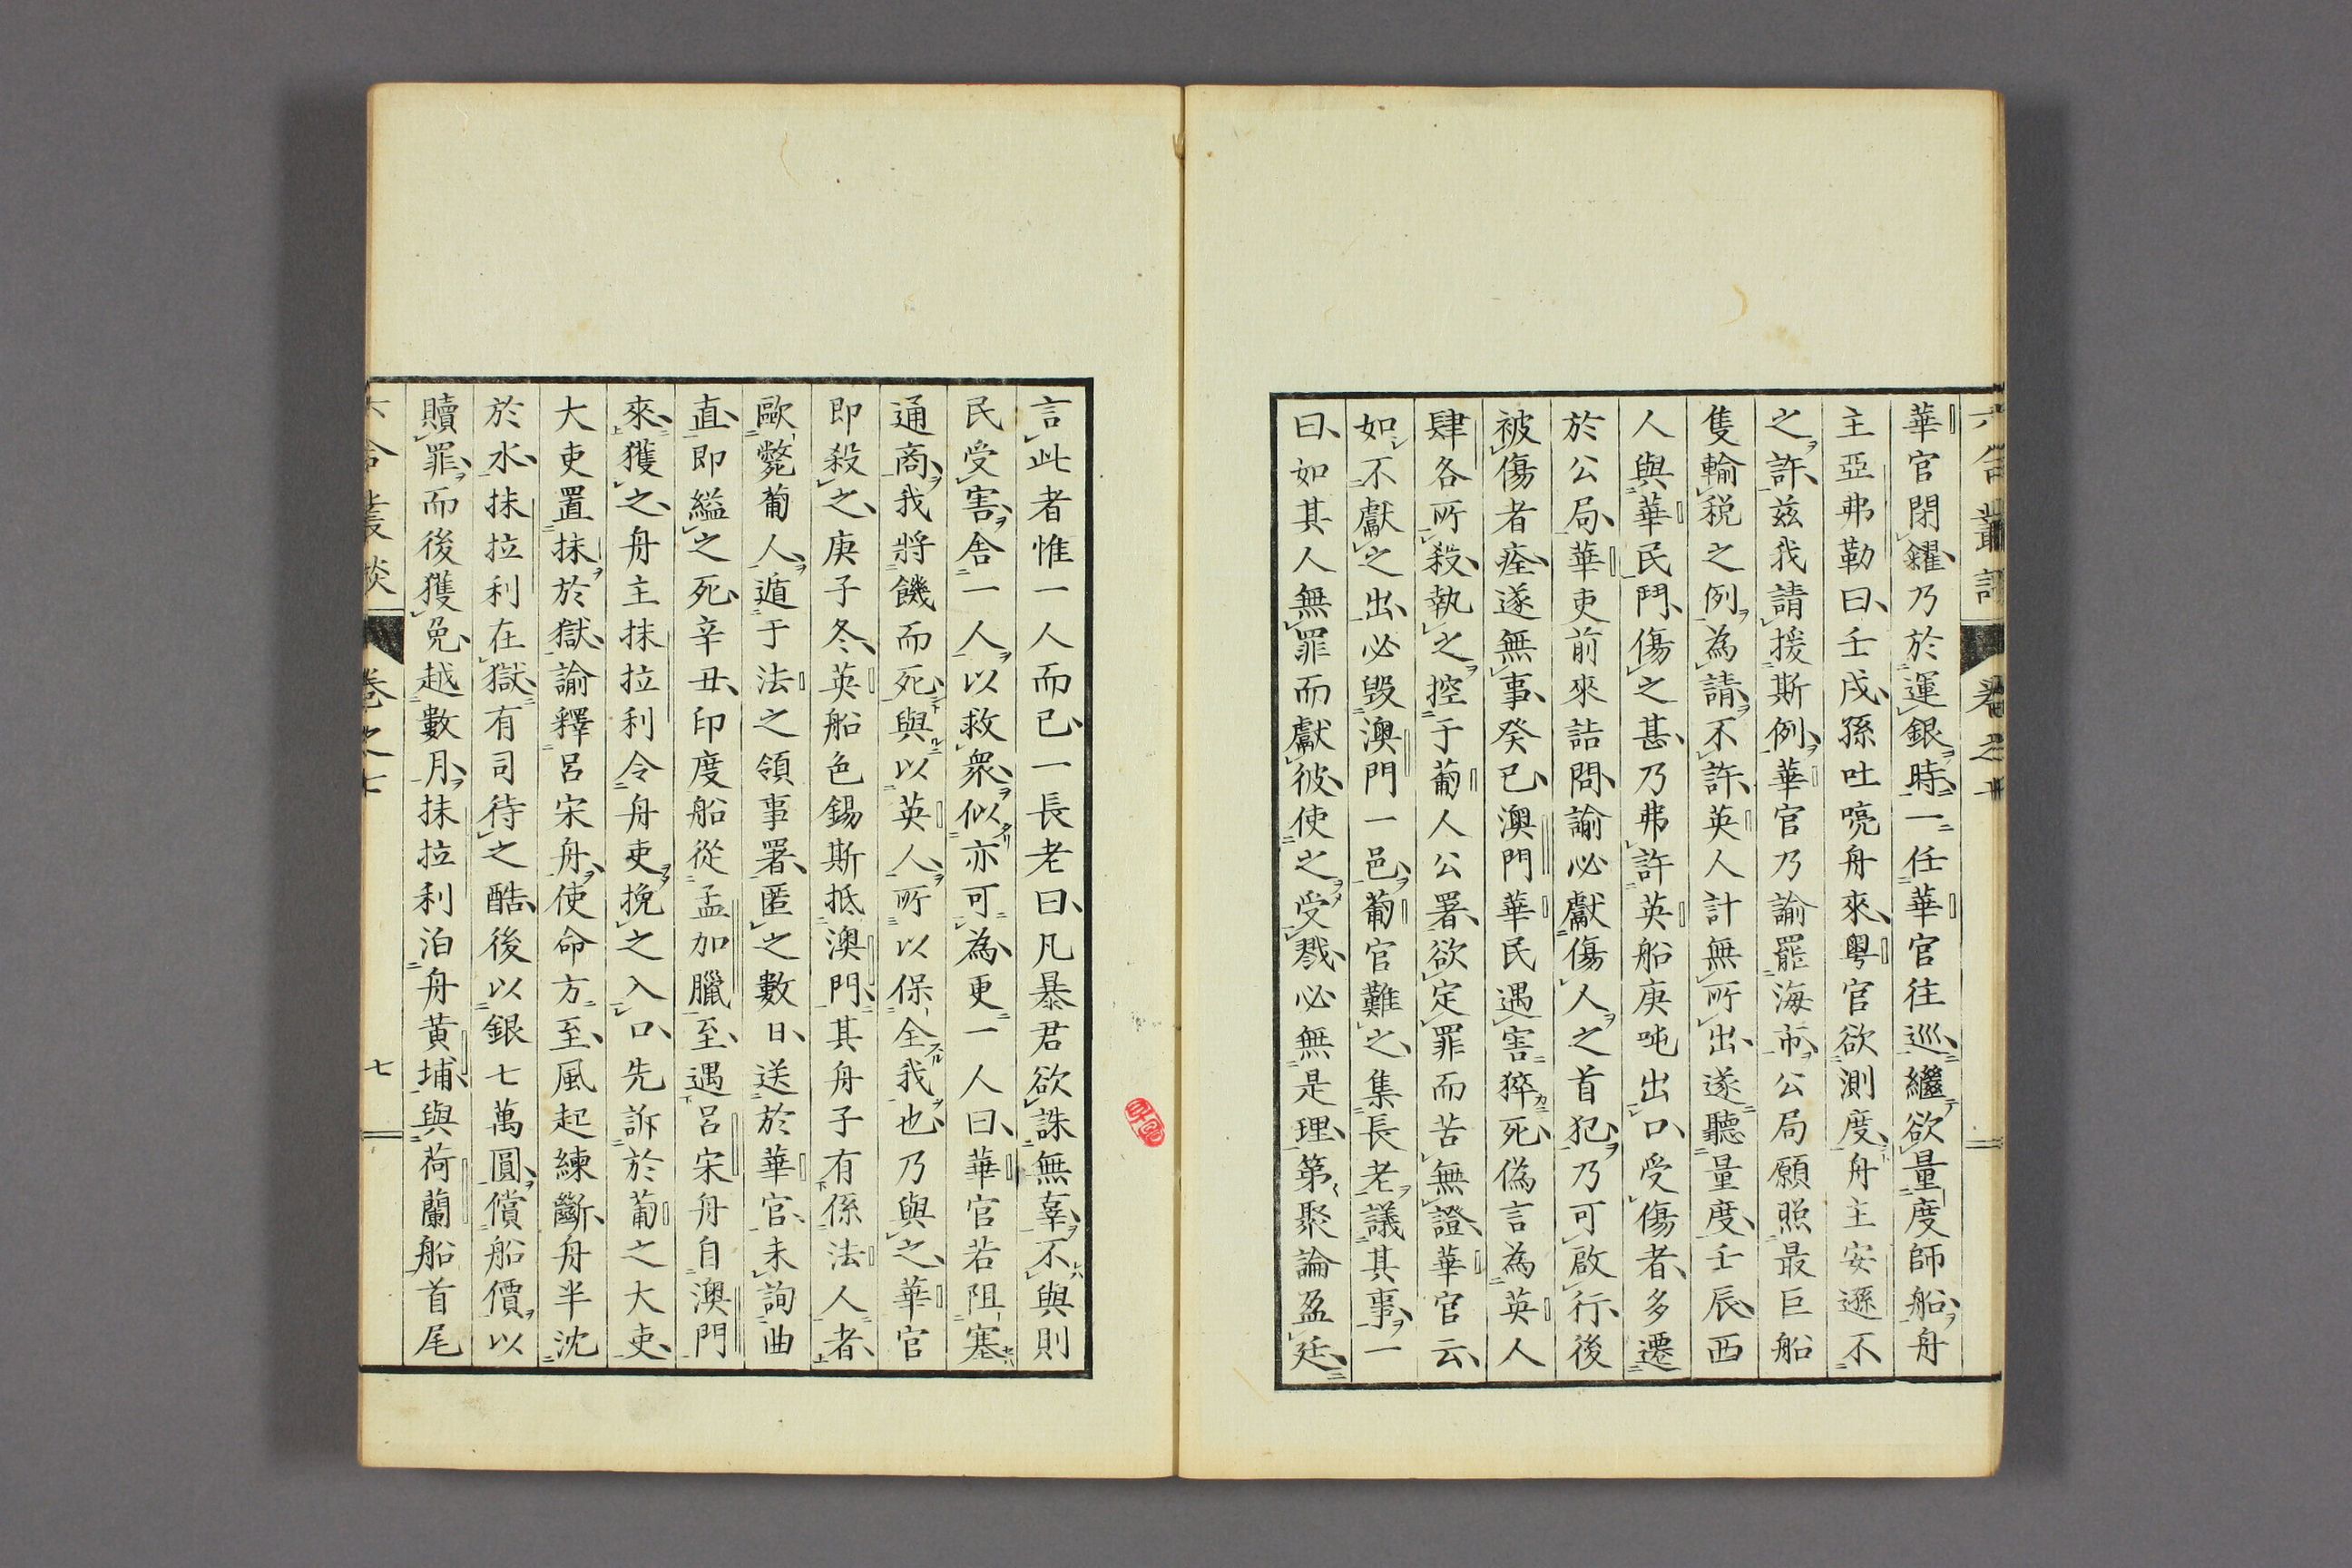 六合叢談 卷之七
華官閉糴乃於運銀時一任華官往巡繼欲量度師船舟
主亞弗勒曰壬戌孫吐喨舟來粵官欲測度舟主安遜不
之許茲我請援斯例華官乃諭罷海市公局願照最巨船
隻輸税之例為請不許英人計無所出遂聽量度壬辰西
人與華民鬥傷之甚乃弗許英船庚吨出口受傷者多遷
於公局華吏前來詰問諭必獻傷人之首犯乃可啟行後
被傷者痊遂無事癸巳澳門華民遇害猝死偽言為英人
肆各所殺執之控于葡人公署欲定罪而苦無證華官云
如不獻之出必毀澳門一邑葡官難之集長老議其事一
曰如其人無罪而獻彼使之受戮必無是理第聚論盈廷
言此者惟一人而已一長老曰凡暴君欲誅無辜不與則
民受害舍一人以救衆似亦可為更一人曰華官若阻塞
通商我將饑而死與以英人所以保全我也乃與之華官
即殺之庚子冬英船色錫斯抵澳門其舟子有係法人者
歐斃葡人遁于法之領事署匿之數日送於華官未詢曲
直即縊之死辛丑印度船從孟加臘至遇呂宋舟自澳門
來獲之舟主抹拉利令舟吏挽之入口先訴於葡之大吏
大吏置抹於獄諭釋呂宋舟使命方至風起練斷舟半沈
於水抹拉利在獄有司待之酷後以銀七萬圓償船價以
贖罪而後獲免越數月抹拉利泊舟黄埔與荷蘭船首尾
六合叢談 卷之七 七